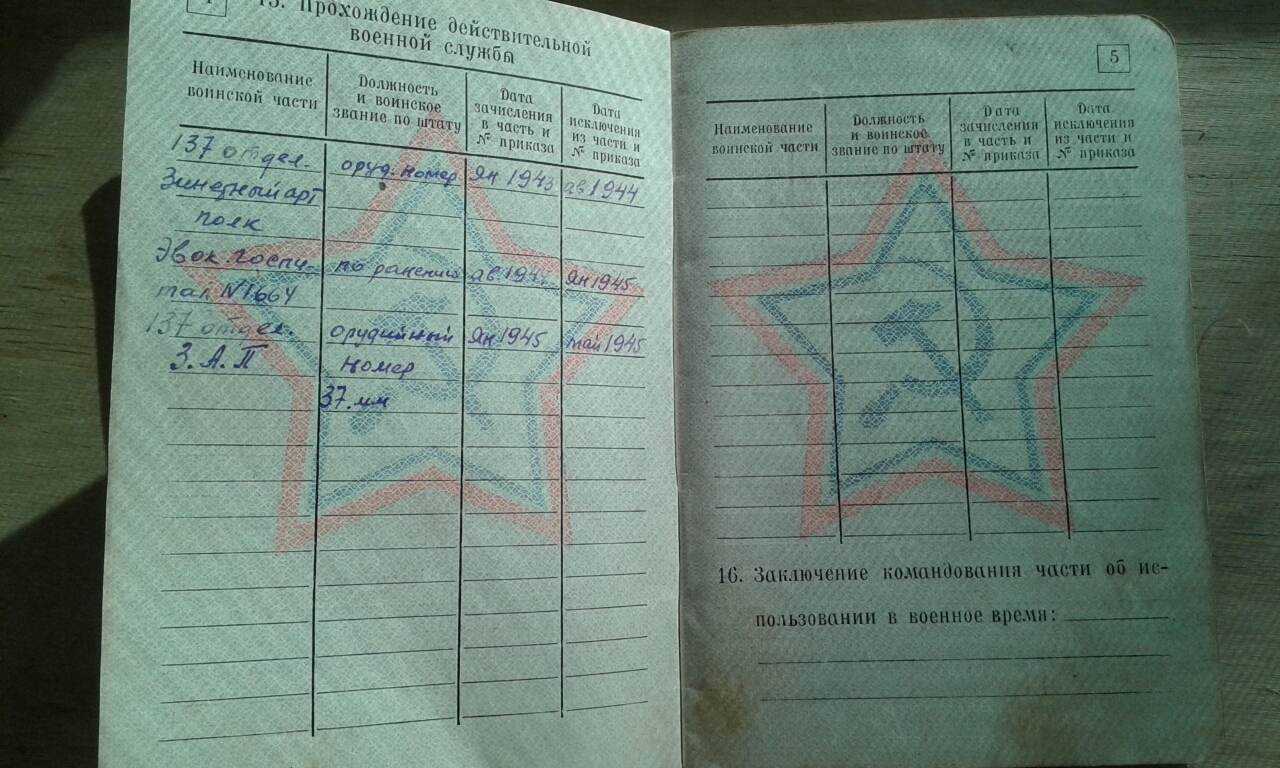 15. Прохождение действительной
военной службы
Наименование
воинской части
Должность
и воинское
звание по штату
Дата
зачисления
в часть и
№ приказа
Дата
исключения
из части и
№ приказа
137 отдел.
оруд. номер
ян 1943
ав 1944
Зинетный арт
полк
Эвок. госпи-
по ранению
ав
ян 1945
тал N1664
137 отдел.
орудийный
ян 1945
май 1945
З.А.П
номер
37.мм
5
Наименование
воинской части
Должность
и воинское
звание по штату
Дата
зачисления
в часть и
№ приказа
Дата
исключения
из части и
№ приказа
16. Заключение командования части об ис-
пользовании в военное время: